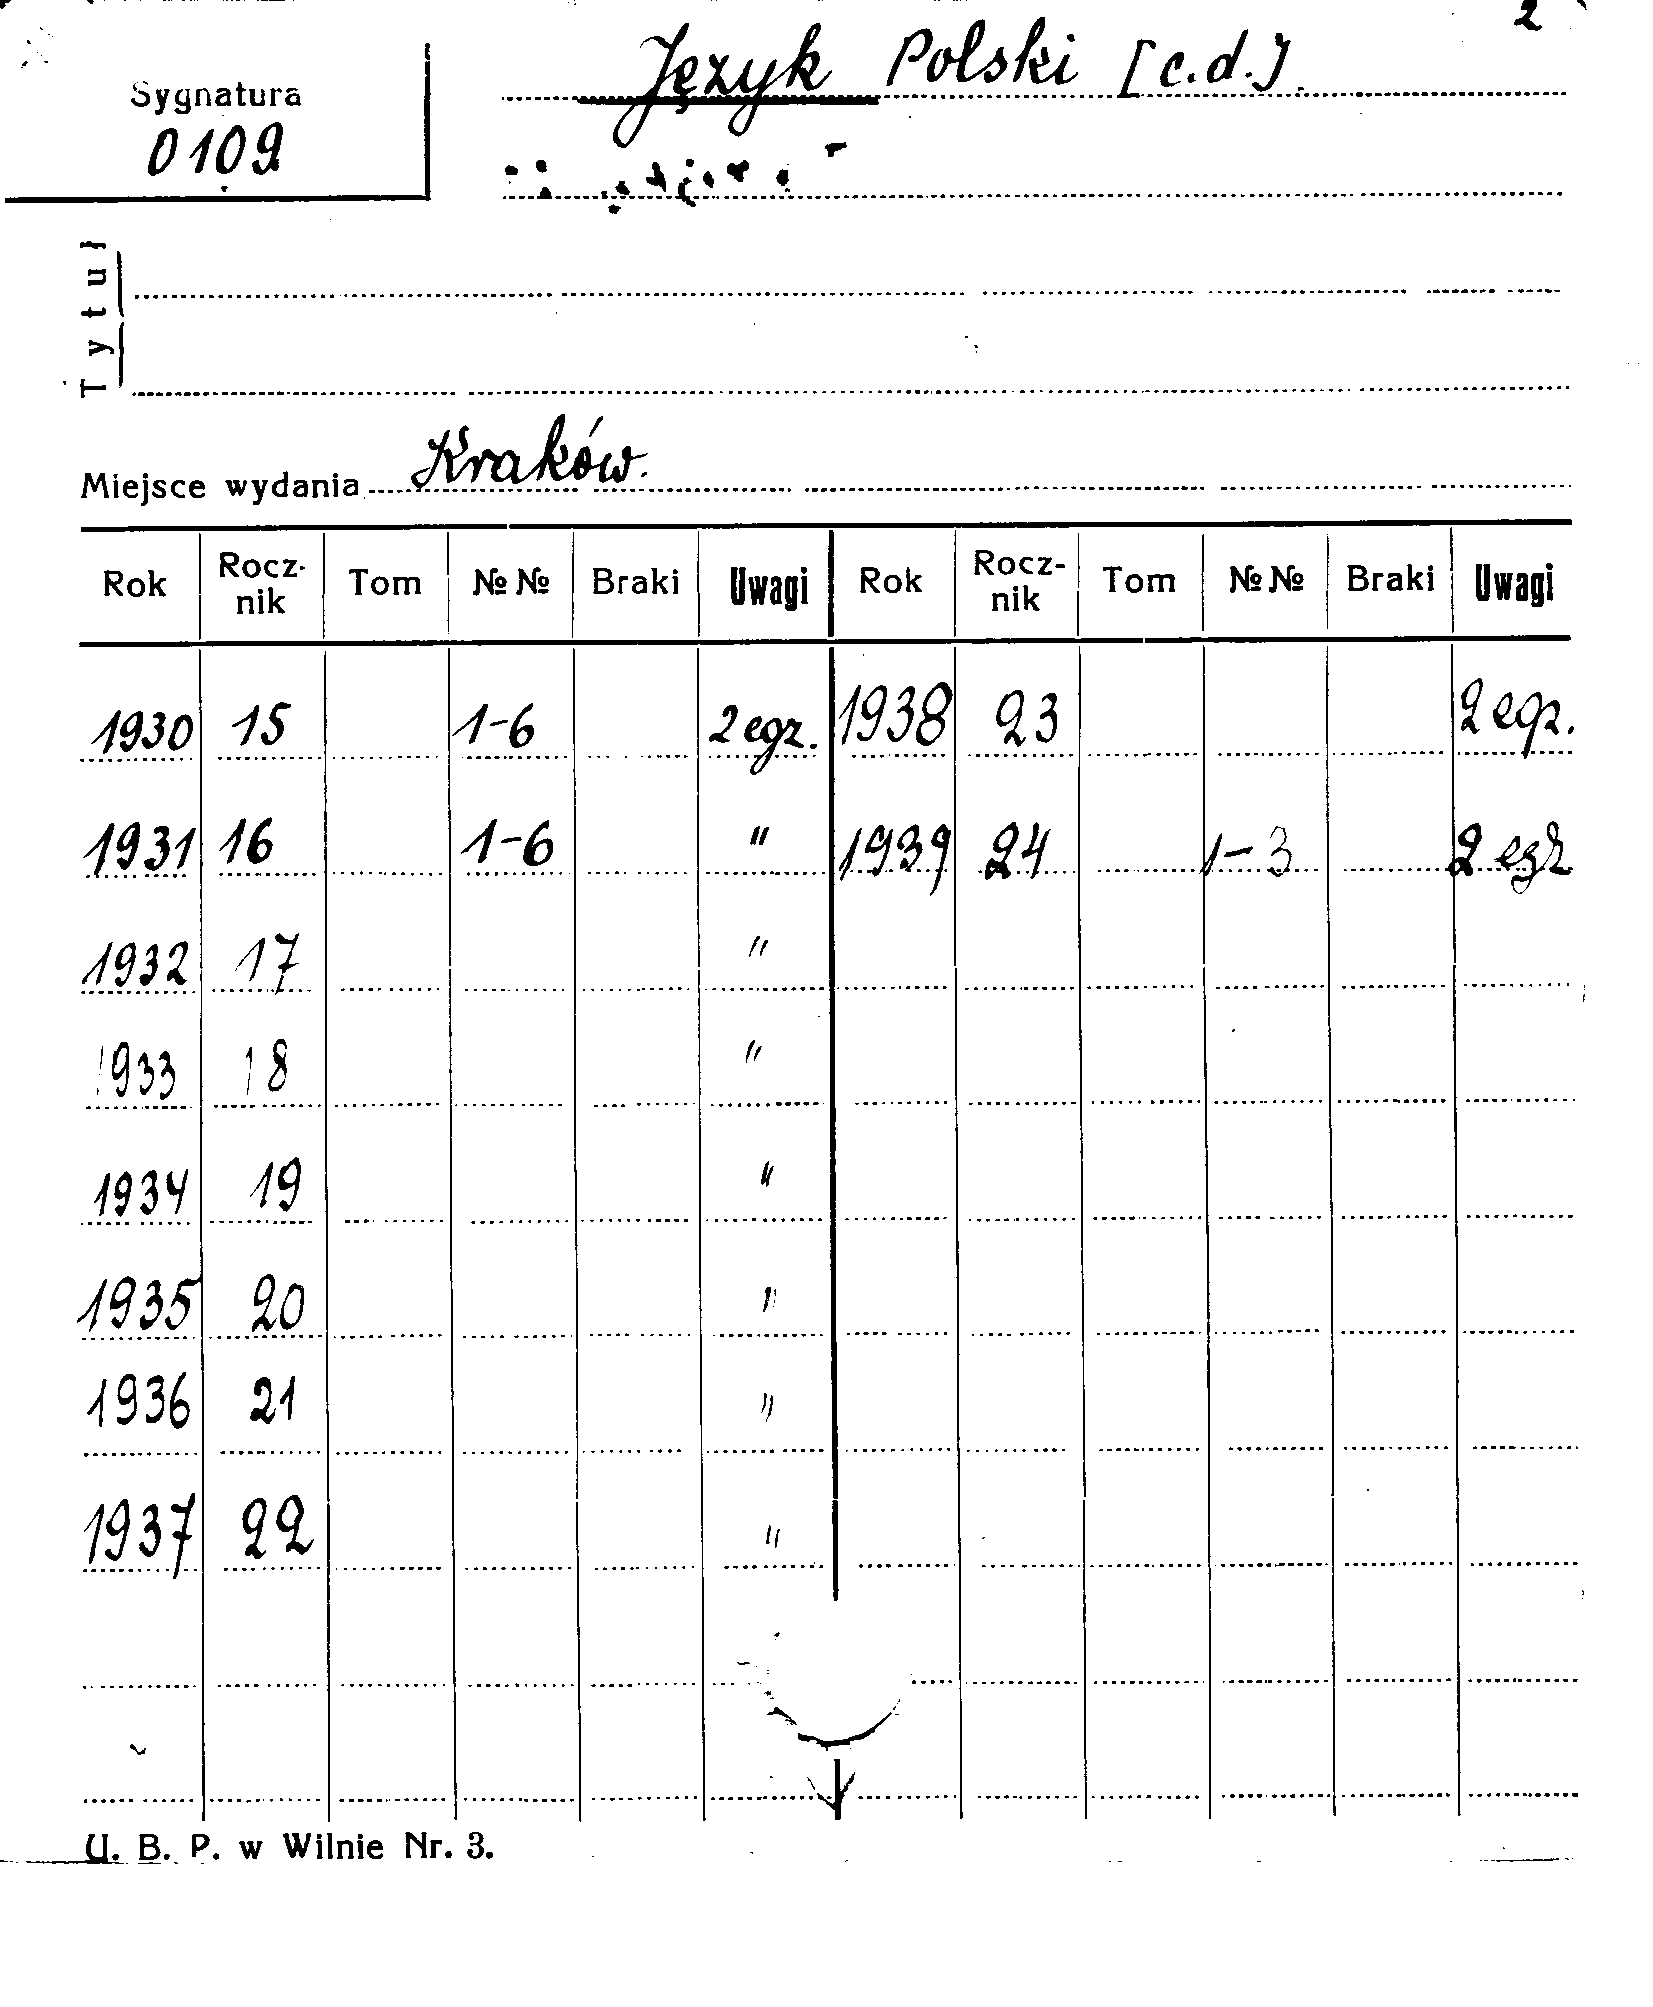 2
Język Polski [c.d.]
Sygnatura
0109
Tytuł
Miejsce wydania Kraków.
Rok Rocz-nik Tom №№ Braki Uwagi Rok Rocz-nik Tom №№ Braki Uwagi
1930 15 1-6 2 egz. 1938 23 2 egz.
1931 16 1-6 " 1939 24 1-3 2 egz
1932 17 "
1933 18 "
1934 19 "
1935 20 "
1936 21 "
1937 22 "
U. B. P. w Wilnie Nr. 3.